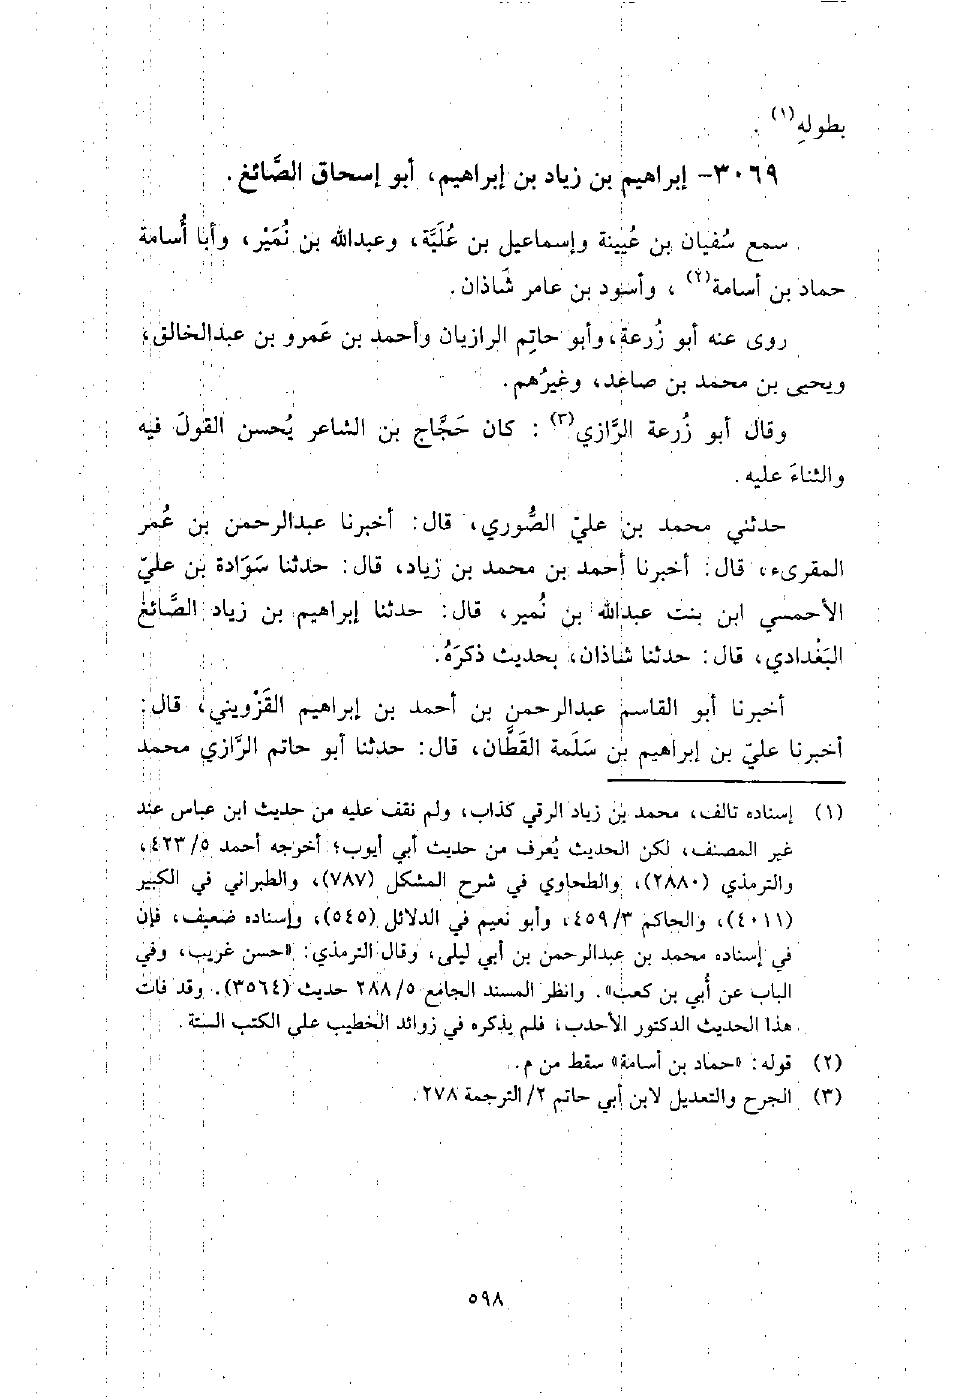 بطولهِ(١) .
٣٠٦٩- إبراهيم بن زياد بن إبراهيم، أبو إسحاق الصَّائغ.
سمع سُفيان بن عُيينة وإسماعيل بن عُلَيَّة، وعبدالله بن نُمَيْر، وأبا أُسامة
حماد بن أسامة(٢) ، وأسود بن عامر شَاذان.
روى عنه أبو زُرعة، وأبو حاتِم الرازيان وأحمد بن عَمرو بن عبدالخالق،
ويحيى بن محمد بن صاعد، وغيرُهم.
وقال أبو زُرعة الرَّازي(٣) : كان حَجَّاج بن الشاعر يُحسن القولَ فيه
والثناءَ عليه.
حدثني محمد بن عليّ الصُّوري، قال: أخبرنا عبدالرحمن بن عُمر
المقرىء، قال: أخبرنا أحمد بن محمد بن زياد، قال: حدثنا سَوَادة بن عليّ
الأحمسي ابن بنت عبدالله بن نُمير، قال: حدثنا إبراهيم بن زياد الصَّائغ
البَغْدادي، قال: حدثنا شاذان، بحديث ذكرَهُ.
أخبرنا أبو القاسم عبدالرحمن بن أحمد بن إبراهيم القَزْويني، قال:
أخبرنا عليّ بن إبراهيم بن سَلَمة القَطَّان، قال: حدثنا أبو حاتم الرَّازي محمد
(١) إسناده تالف، محمد بن زياد الرقي كذاب، ولم نقف عليه من حديث ابن عباس عند
غير المصنف، لكن الحديث يُعرف من حديث أبي أيوب؛ أخرجه أحمد ٥/ ٤٢٣،
والترمذي (٢٨٨٠)، والطحاوي في شرح المشكل (٧٨٧)، والطبراني في الكبير
(٤٠١١)، والحاكم ٣/ ٤٥٩، وأبو نعيم في الدلائل (٥٤٥)، وإسناده ضعيف، فإن
في إسناده محمد بن عبدالرحمن بن أبي ليلى، وقال الترمذي: «حسن غريب، وفي
الباب عن أُبي بن كعب». وانظر المسند الجامع ٥/ ٢٨٨ حديث (٣٥٦٤). وقد فات
هذا الحديث الدكتور الأحدب، فلم يذكره في زوائد الخطيب على الكتب الستة.
(٢) قوله: «حماد بن أسامة» سقط من م.
(٣) الجرح والتعديل لابن أبي حاتم ٢/ الترجمة ٢٧٨.
٥٩٨